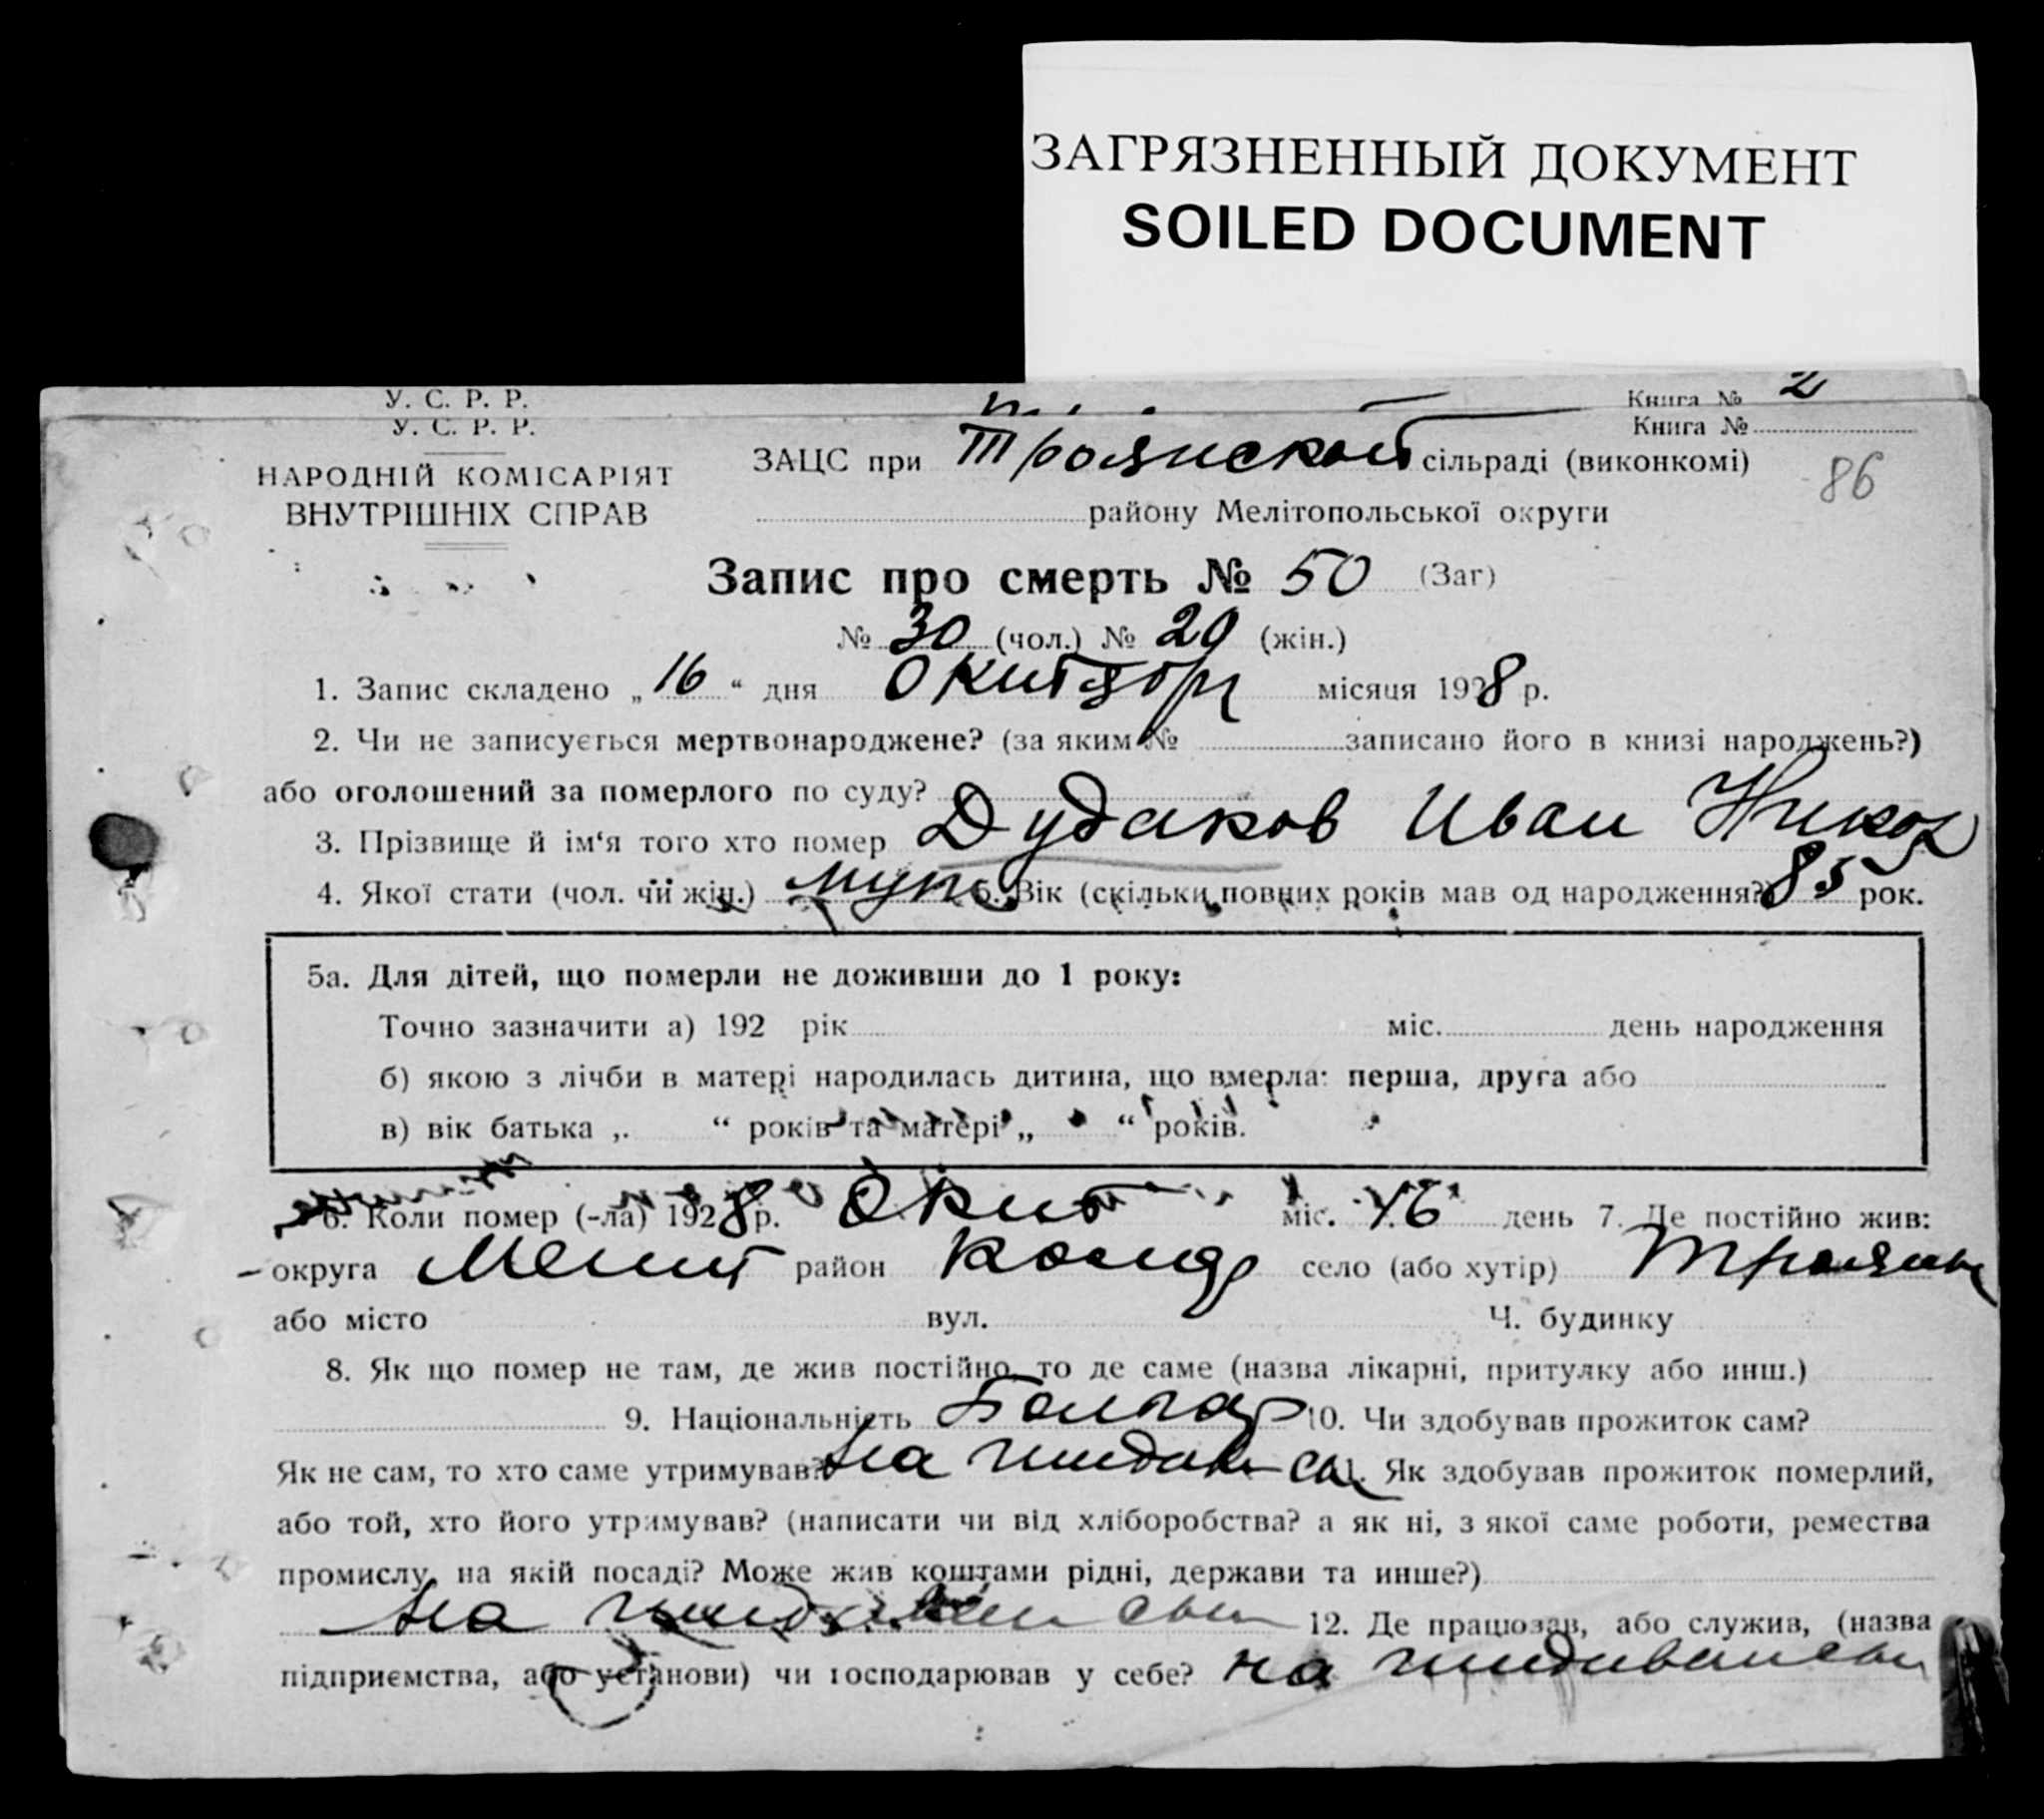 ЗАГРЯЗНЕННЫЙ ДОКУМЕНТ
SOILED DOCUMENT
У. С. Р. Р.
Книга № 2
У. С. Р. Р.
Книга №
НАРОДНІЙ КОМІСАРІЯТ
ВНУТРІШНІХ СПРАВ
ЗАЦС при Троянской сільраді (виконкомі)
86
району Мелітопольської округи
Запис про смерть № 50 (Заг)
№ 30 (чол.) № 20 (жін.)
1. Запис складено „16“ дня Октября місяця 1928 р.
2. Чи не записується мертвонароджене? (за яким № записано його в книзі народжень?)
або оголошений за померлого по суду?
3. Прізвище й ім‘я того хто помер Дудаков Иван Никол
4. Якої стати (чол. чи жін.) муж 5. Вік (скільки повних років мав од народження?) 85 рок.
5а. Для дітей, що померли не доживши до 1 року:
Точно зазначити а) 192 рік міс. день народження
б) якою з лічби в матері народилась дитина, що вмерла: перша, друга або
в) вік батька „ “ років та матері „ “ років.
6. Коли помер (-ла) 1928 р. Окт міс. 16 день 7. Де постійно жив:
округа Мелит район село (або хутір) Троян
або місто вул. Ч. будинку
8. Як що помер не там, де жив постійно, то де саме (назва лікарні, притулку або инш.)
9. Національність Болгар 10. Чи здобував прожиток сам?
Як не сам, то хто саме утримував? На иждив сы 11. Як здобував прожиток померлий,
або той, хто його утримував? (написати чи від хліборобства? а як ні, з якої саме роботи, ремества
промислу, на якій посаді? Може жив коштами рідні, держави та инше?)
На сын 12. Де працював, або служив, (назва
підприємства, або установи) чи господарював у себе? на